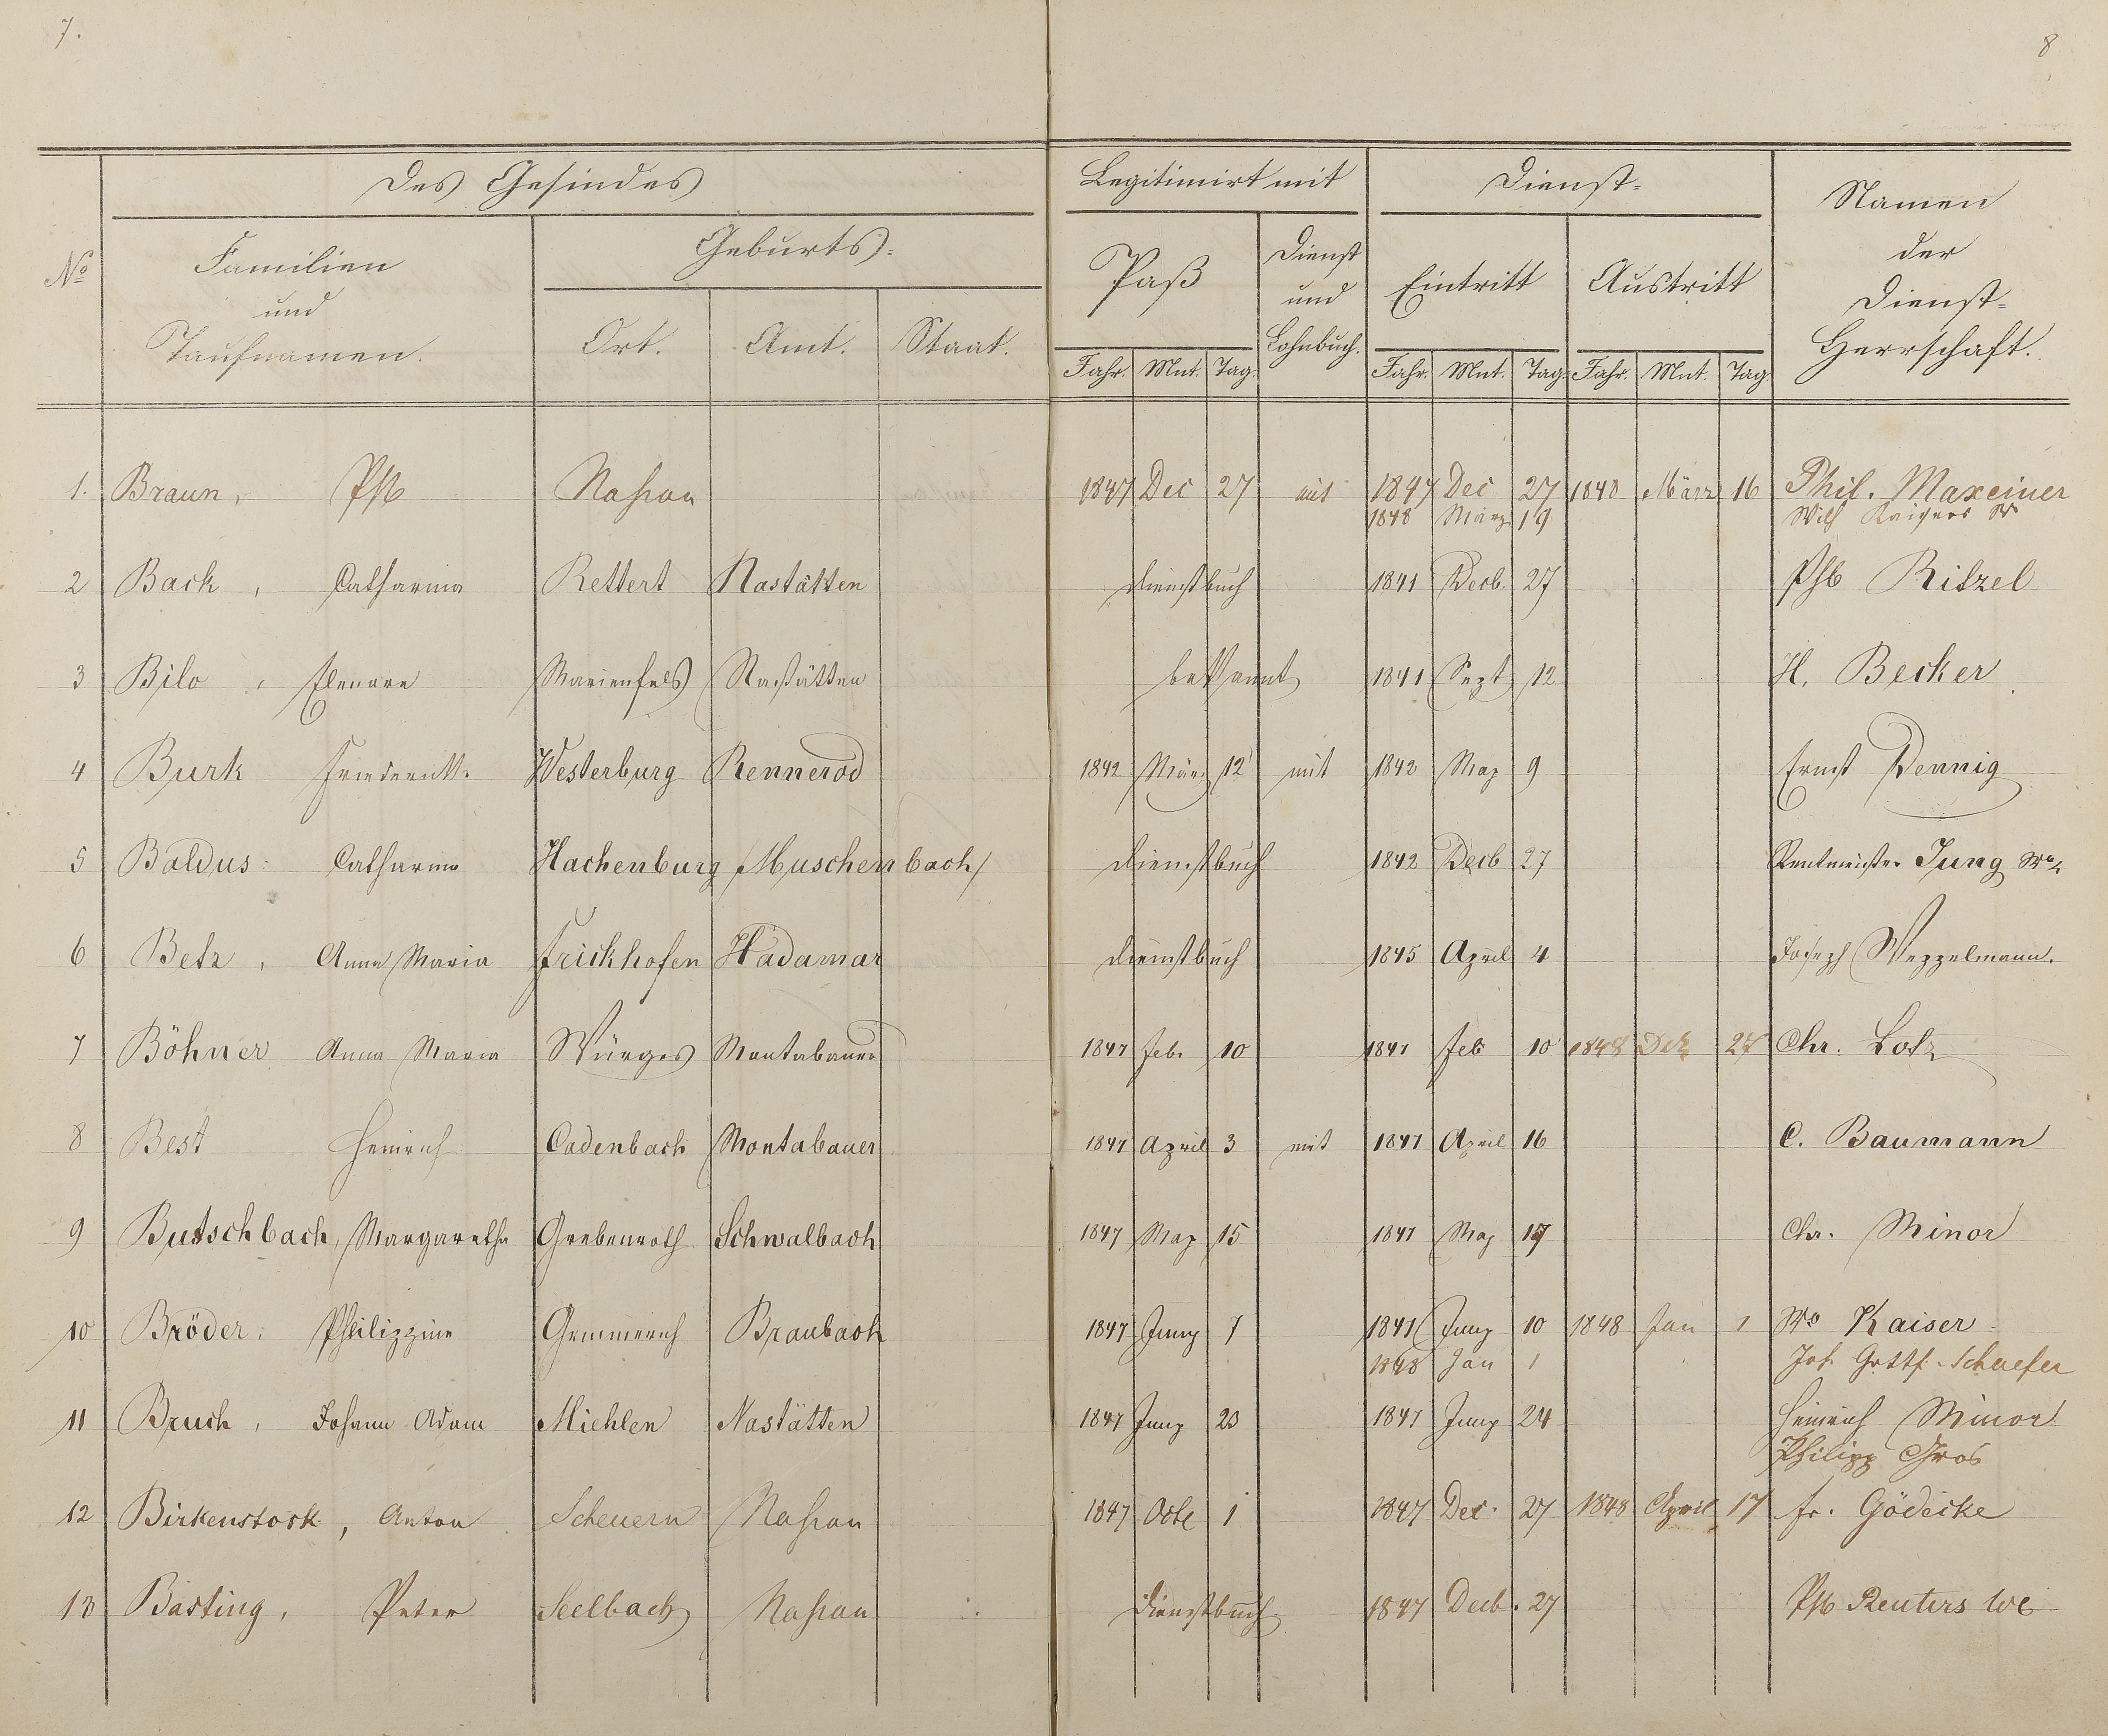 7.
8
Des Gesindes
Legitimirt mit
Dienst-
Namen der Dienst-Herrschaft.
No
Familien und Taufnamen.
Geburts-
Paß
Dienst und Lohnbuch.
Eintritt
Austritt
Ort. Amt. Staat.
Jahr. Mnt. Tag. Jahr. Mnt. Tag. Jahr. Mnt. Tag.
1. Braun, Phb Nassau 1847 Dec 27 mit 1847 Dec 27 1848 März 16 Phil. Maxeiner
1848 März 19 Wilh
2 Back, Catharina Rettert Nastätten Dienstbuch 1841 Decb. 27 Phb Ritzel
3 Bilo, Elenore Marienfels Nastätten bekannt 1841 Sept 12 H. Becker
4 Burk Friederike Westerburg Rennerod 1842 März 12 mit 1842 May 9 Ernst Dennig
5 Baldus Catharina Hachenburg Muschenbach Dienstbuch 1842 Decb 27 Rentmeister Jung We
6 Betz, Anna Maria Frickhofen Hadamar Dienstbuch 1845 April 4 Joseph Weppelmann.
7 Böhner Anna Maria Würges Montabauer 1847 Feb. 10 1847 Feb 10 1848 Dez 27 Chr. Lotz
8 Best Heinrich Cadenbach Montabauer 1847 April 3 mit 1847 April 16 C. Baumann
9 Butschbach, Margaretha Grebenroth Schwalbach 1847 May 15 1847 May 17 Chr. Minor
10 Bröder, Philippine Gemmerich Braubach 1847 Juny 7 1847 Juny 10 1848 Jan 1 We Kaiser
1848 Jan 1 Joh. Gottf. Schaefer
11 Bruch, Johann Adam Miehlen Nastätten 1847 Juny 23 1847 Juny 24 Heinrich Minor
Philipp Gros
12 Birkenstock, Anton Scheuern Nassau 1847 Octb 1 1847 Dec. 27 1848 April 17 Fr. Gödecke
13 Bästing, Peter Seelbach Nassau Dienstbuch 1847 Decb. 27 Phb Reuters We